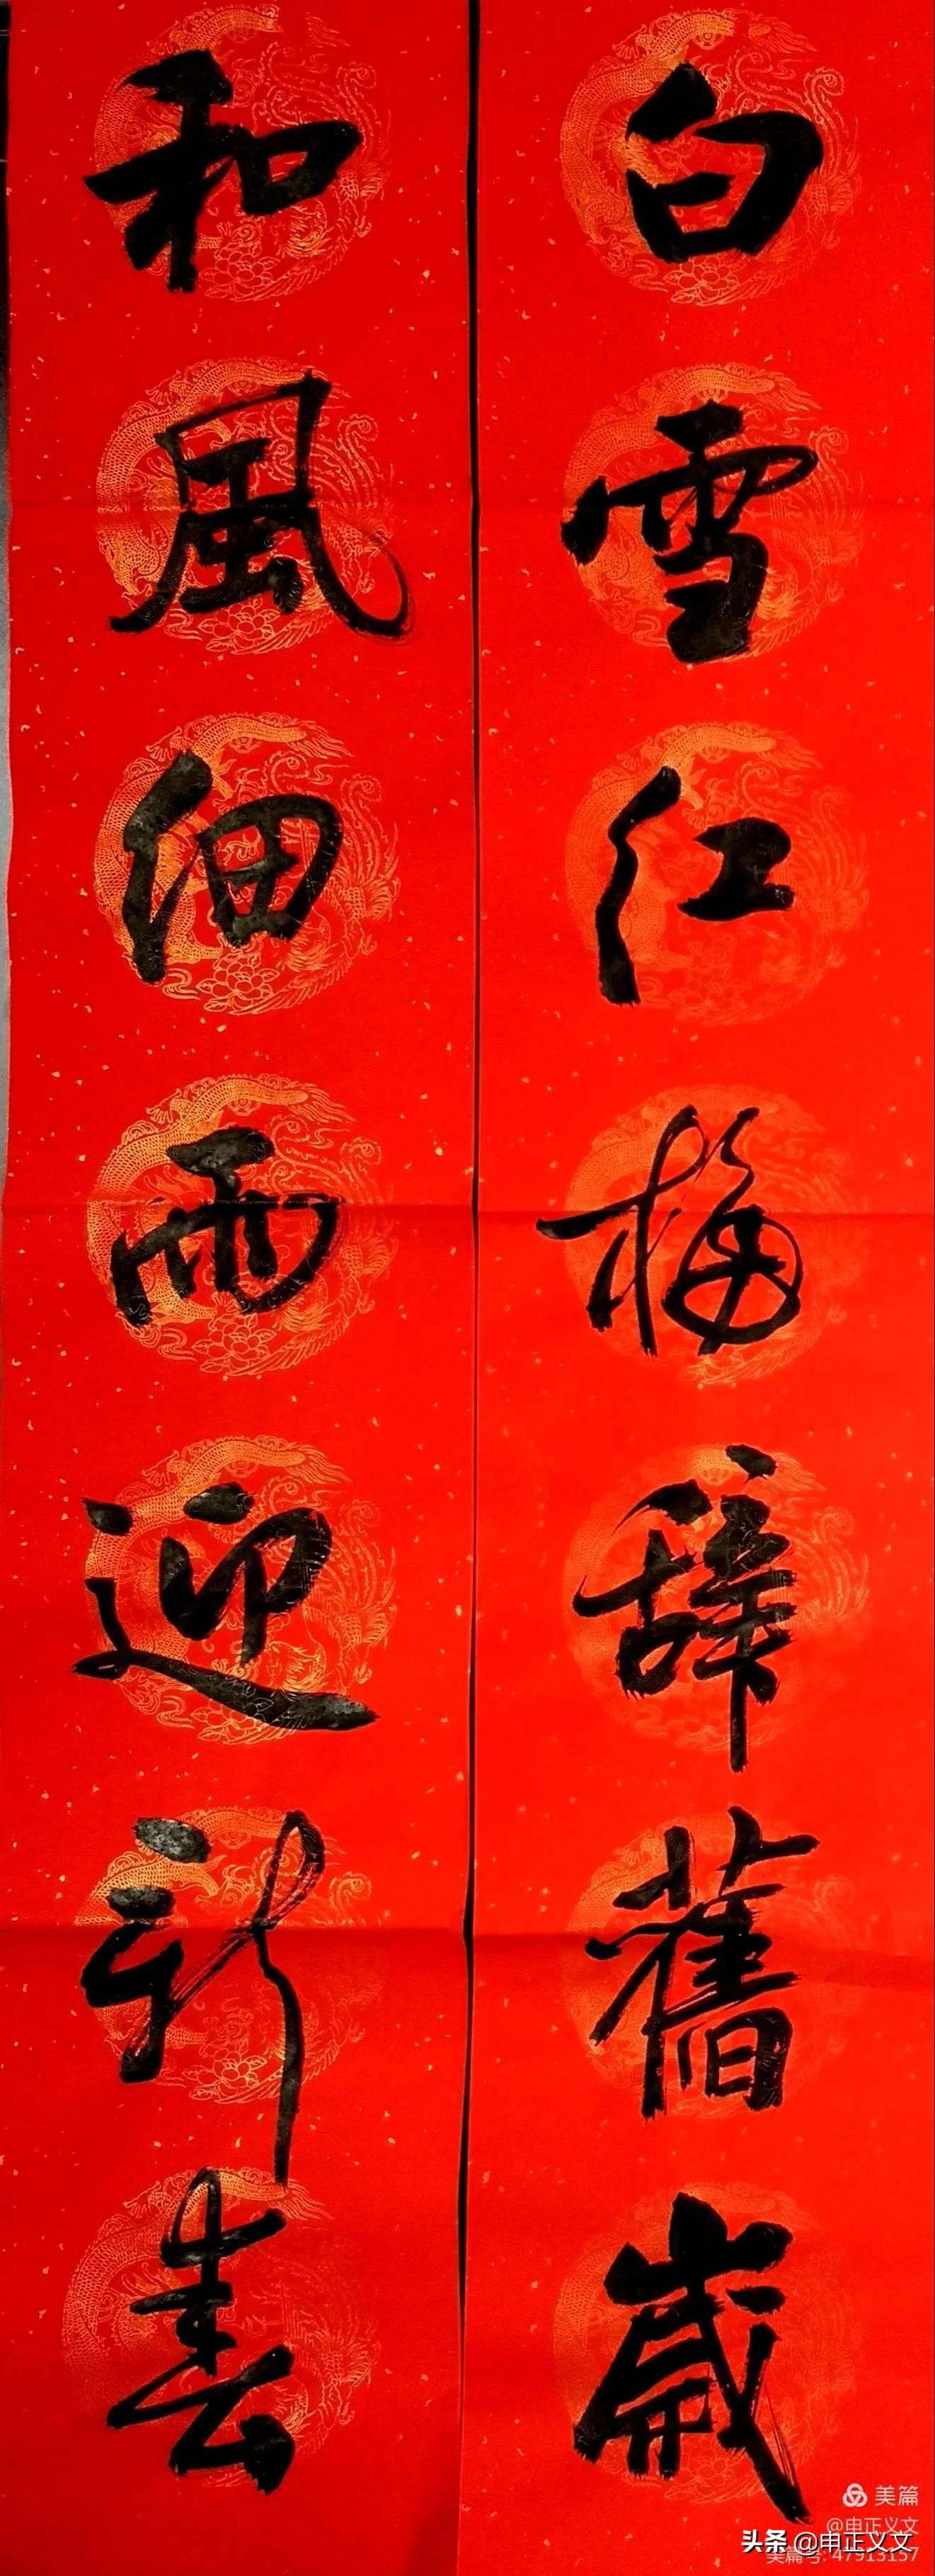 白雪红梅辞舊歲
和風细雨迎新春
美篇
@申正义文
头条 @申正义文
美篇号: 47913157